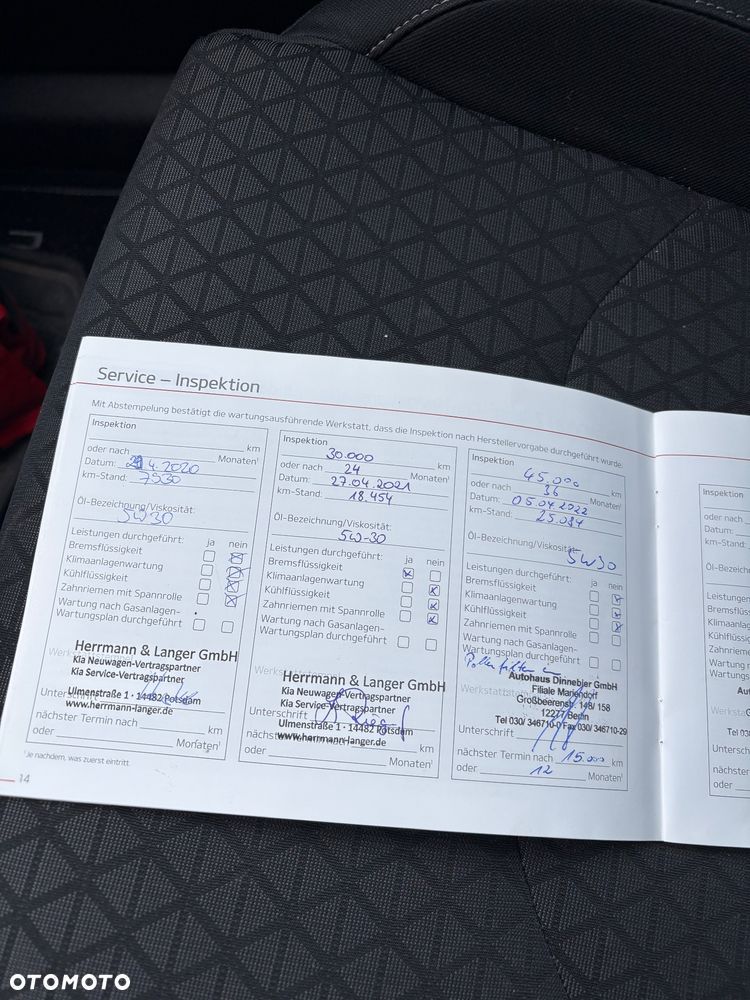 Service – Inspektion
Mit Abstempelung bestätigt die wartungsausführende Werkstatt, dass die Inspektion nach Herstellervorgabe durchgeführt wurde.
Inspektion
km
oder nach
Monaten¹
Datum: 4.2020
km-Stand: 7930
Öl-Bezeichnung/Viskosität:
5W30
Leistungen durchgeführt: ja nein
Bremsflüssigkeit
Klimaanlagenwartung
Kühlflüssigkeit
Zahnriemen mit Spannrolle
Wartung nach Gasanlagen-
Wartungsplan durchgeführt
Herrmann & Langer GmbH
Kia Neuwagen-Vertragspartner
Kia Service-Vertragspartner
Ulmenstraße 1 · 14482 Potsdam
www.herrmann-langer.de
Unterschrift
nächster Termin nach km
oder Monaten¹
¹Je nachdem, was zuerst eintritt.
14
Inspektion
30.000 km
oder nach 24 Monaten¹
Datum: 27.04.2021
km-Stand: 18.454
Öl-Bezeichnung/Viskosität:
5W-30
Leistungen durchgeführt: ja nein
Bremsflüssigkeit
Klimaanlagenwartung
Kühlflüssigkeit
Zahnriemen mit Spannrolle
Wartung nach Gasanlagen-
Wartungsplan durchgeführt
Herrmann & Langer GmbH
Kia Neuwagen-Vertragspartner
Kia Service-Vertragspartner
Unterschrift
Ulmenstraße 1 · 14482 Potsdam
www.herrmann-langer.de
km
oder Monaten¹
Inspektion
45.000 km
oder nach 36 Monaten¹
Datum: 05.04.2022
km-Stand: 25.084
Öl-Bezeichnung/Viskosität:
5W30
Leistungen durchgeführt: ja nein
Bremsflüssigkeit
Klimaanlagenwartung
Kühlflüssigkeit
Zahnriemen mit Spannrolle
Wartung nach Gasanlagen-
Wartungsplan durchgeführt
Autohaus Dinnebier GmbH
Filiale Mariendorf
Großbeerenstr. 148/158
12277 Berlin
Tel 030/ 346710-0 Fax 030/ 346710-29
Unterschrift
nächster Termin nach 15.000 km
oder 12 Monaten¹
Inspektion
oder nach
Datum:
km-Stand:
Öl-Bezeich
Leistungen
Bremsflüss
Klimaanla
Kühlflüssi
Zahnriem
Wartung
Wartungs
Au
Tel 03
Unterschri
nächster
oder
OTOMOTO